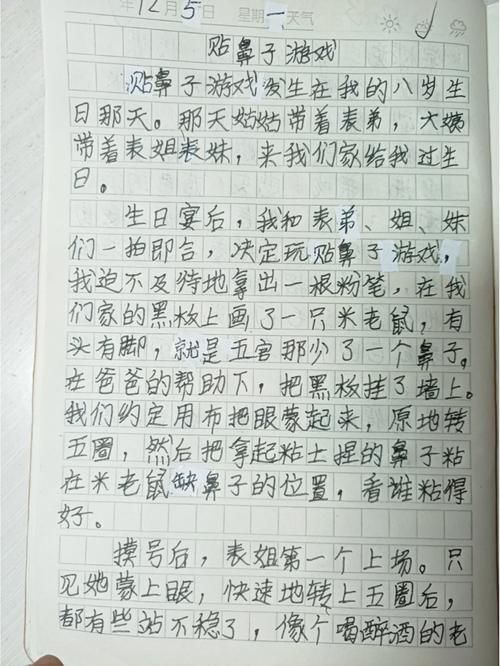 年12月5日 星期一天气
贴鼻子游戏
贴鼻子游戏发生在我的八岁生
日那天。那天姑姑带着表弟，大姨
带着表姐表妹，来我们家给我过生
日。
生日宴后，我和表弟、姐、妹
们一拍即合，决定玩贴鼻子游戏，
我迫不及待地拿出一根粉笔，在我
们家的黑板上画了一只米老鼠，有
头有脚，就是五官那少了一个鼻子。
在爸爸的帮助下，把黑板挂了墙上。
我们约定用布把眼蒙起来，原地转
五圈，然后把拿起粘土捏的鼻子粘
在米老鼠缺鼻子的位置，看谁粘得
好。
摸号后，表姐第一个上场。只
见她蒙上眼，快速地转上五圈后，
都有些站不稳了，像个喝醉酒的老